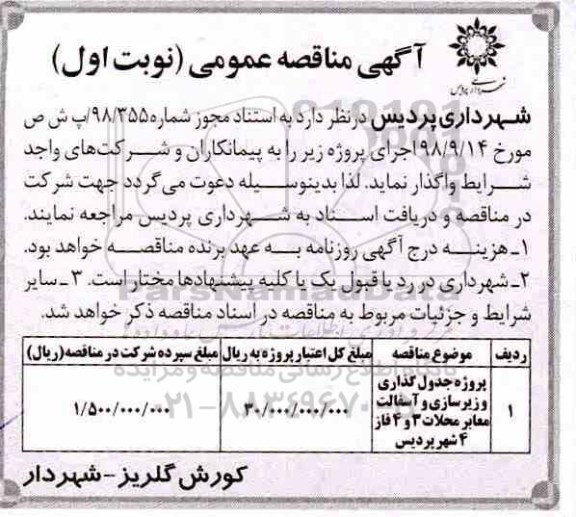 آگهی مناقصه عمومی (نوبت اول)
شهرداری پردیس
شهرداری پردیس درنظر دارد به استناد مجوز شماره ۹۸/۳۵۵/پ ش ص
مورخ ۹۸/۹/۱۴ اجرای پروژه زیر را به پیمانکاران و شرکت‌های واجد
شرایط واگذار نماید. لذا بدینوسیله دعوت می‌گردد جهت شرکت
در مناقصه و دریافت اسناد به شهرداری پردیس مراجعه نمایند.
۱ـ هزینه درج آگهی روزنامه به عهد برنده مناقصه خواهد بود.
۲ـ شهرداری در رد یا قبول یک یا کلیه پیشنهادها مختار است. ۳ـ سایر
شرایط و جزئیات مربوط به مناقصه در اسناد مناقصه ذکر خواهد شد.
ParsNamadData
ردیف موضوع مناقصه مبلغ کل اعتبار پروژه به ریال مبلغ سپرده شرکت در مناقصه (ریال)
۱ پروژه جدول گذاری
و زیرسازی و آسفالت
معابر محلات ۳ و ۴ فاز
۴ شهر پردیس
۳۰/۰۰۰/۰۰۰/۰۰۰ ۱/۵۰۰/۰۰۰/۰۰۰
پایگاه اطلاع رسانی مناقصه و مزایده
۰۲۱-۸۸۳۴۹۶۷۰
کورش گلریز - شهردار